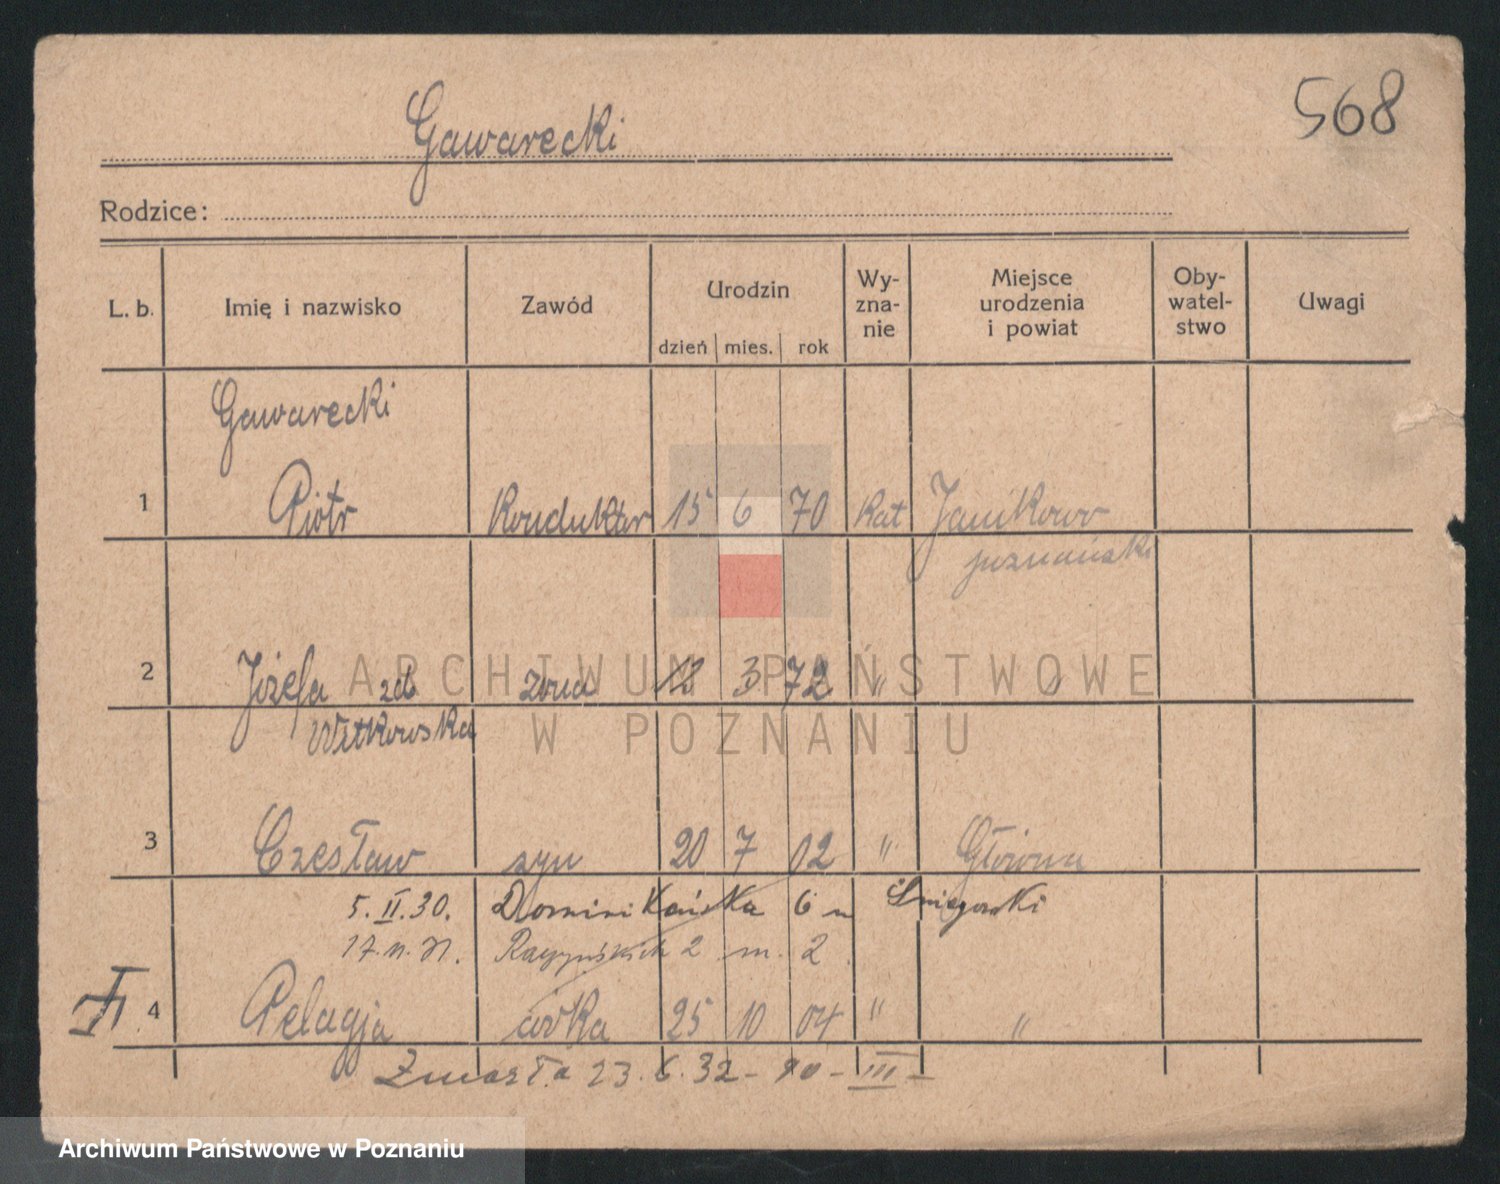 568
Gawarecki
Rodzice:
L. b. Imię i nazwisko Zawód Urodzin dzień mies. rok Wy-zna-nie Miejsce urodzenia i powiat Oby-watel-stwo Uwagi
Gawarecki
1 Piotr Konduktor 15 6 70 Kat Janikowo
poznański
2 Józefa zd żona 3 72 "
Witkowska
3 Czesław syn 20 7 02 " Główna
5. II. 30. Dominikańska 6 Śniegowski
2 m. 2
4 Pelagja córka 25 10 04 " "
Zmarła 23. 6. 32 - - III -
ARCHIWUM PAŃSTWOWE
W POZNANIU
Archiwum Państwowe w Poznaniu